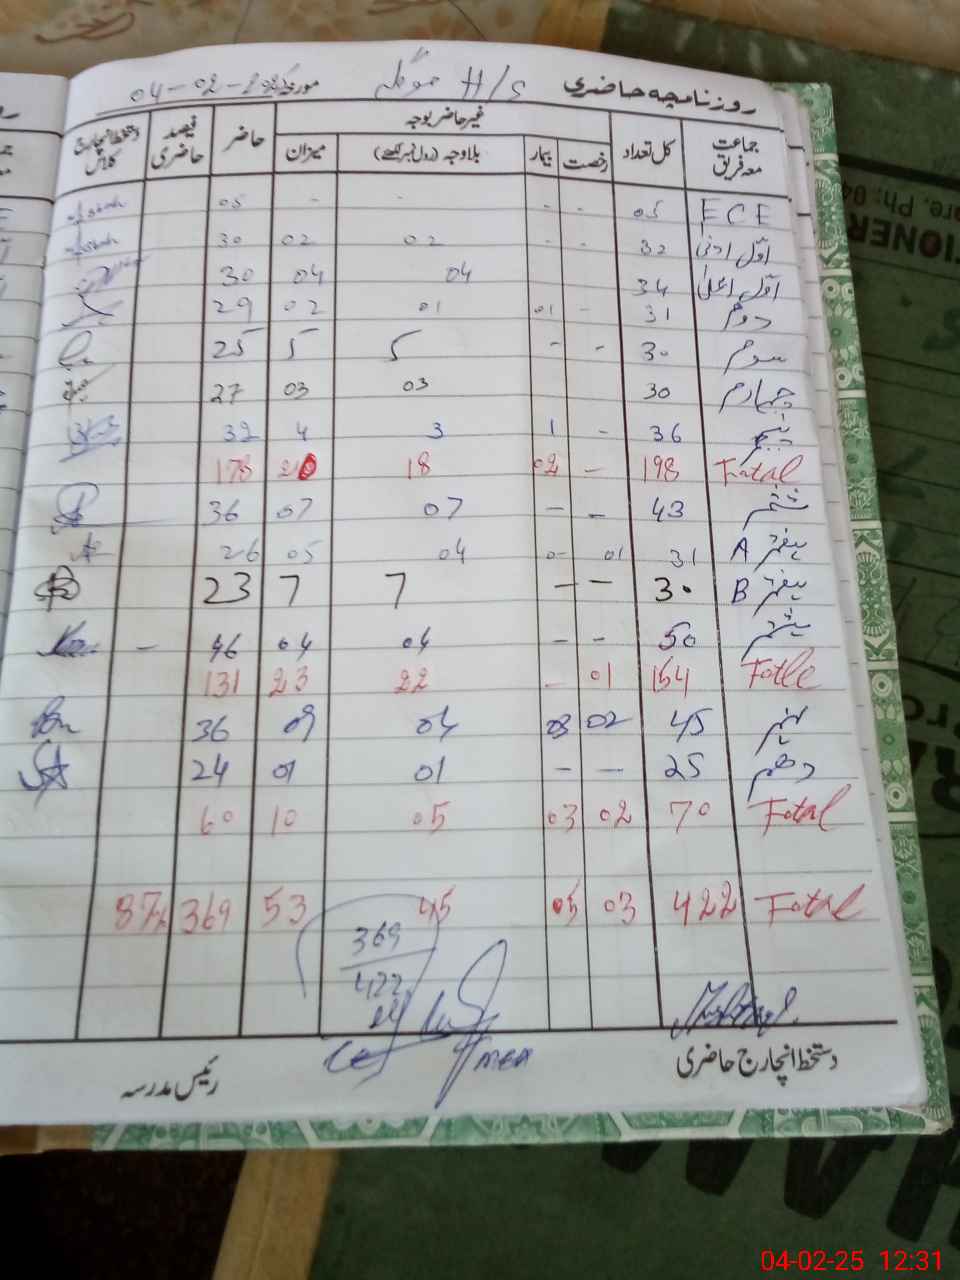 روزنامچہ حاضری H/S مورخہ 04-02-2025
جماعت معہ فریق کل تعداد غیر حاضر بوجہ حاضر فیصد حاضری دستخط انچارج کلاس
رخصت بیمار بلاوجہ (رول نمبر لکھیے) میزان
ECE 05 - - - - 05
اوّل ادنیٰ 32 - - 02 02 30
اوّل اعلیٰ 34 04 04 30
دوم 31 - 01 01 02 29
سوم 30 - - 5 5 25
چہارم 30 03 03 27
پنجم 36 - 1 3 4 32
Total 198 - 02 18 20 178
ششم 43 - - 07 07 36
ہفتم A 31 01 0- 04 05 26
ہفتم B 30 - - 7 7 23
ہشتم 50 - - 04 04 46 -
Totle 154 01 - 22 23 131
نہم 45 02 03 04 09 36
دہم 25 - - 01 01 24
Total 70 02 03 05 10 60
Total 422 03 05 45 53 369 87%
369
422
دستخط انچارج حاضری رئیس مدرسہ
TIONER
ore. Ph: 04
04-02-25 12:31